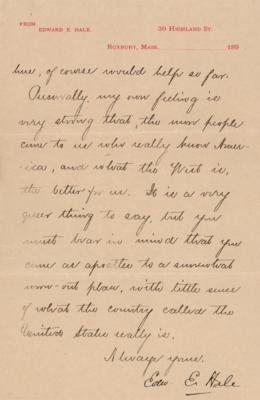 FROM
EDWARD E. HALE.
39 HIGHLAND ST.
ROXBURY, MASS. 189
line, of course would help so far.
Personally, my own feeling is
very strong that, the more people
come to us who really know Amer-
ica, and what the West is,
the better for us. It is a very
queer thing to say, but you
must bear in mind that you
come as apostles to a somewhat
worn-out place, with little sense
of what the country called the
United States really is.
Always yours,
Edw. E. Hale